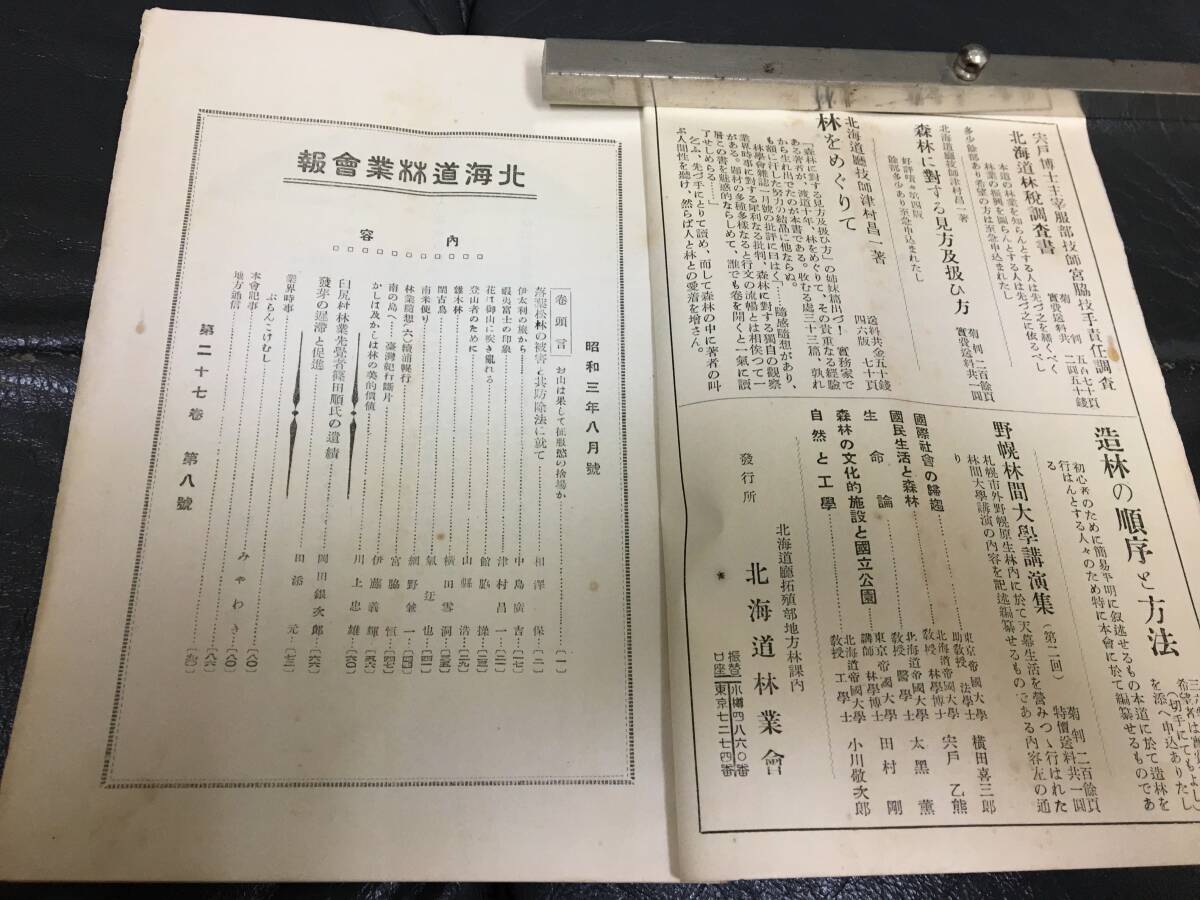 宍戸博士主宰服部技師宮脇技手責任調査
北海道林税調査書
菊判 五百七十頁
實費送料共 二圓五十錢
本道の林業を知らんとする人は先づ之を繙くべく
林業の振興を圖らんとする人は先づ之に依るべし
多少餘部あり希望の方は至急申込まれたし
北海道廳技師津村昌一著
森林に對する見方及扱ひ方
菊判二百餘頁
實費送料共一圓
好評嘖々第四版
餘部多少あり至急申込まれたし
北海道廳技師津村昌一著
林をめぐりて
四六版 七十頁
送料共金五十錢
「森林に對する見方及扱ひ方」の姉妹篇出づ！實務家で
ある著者が、渡道十年、林をめぐりて、その貴重なる經驗
から生れ出でたのが本書である。收むる處三十三篇、孰れ
も額に汗した努力の結晶に他ならぬ。
林學會雜誌一月號の批評に曰はく「……隨感隨想があり、
業界時事に對する犀利なる批判、森林に對する獨自の觀察
がある。題材の多種多樣なると行文の流暢とは相俟つて一
層この書を魅惑的ならしめて、誰でも卷を開くと一氣に讀
了せしめる……」
乞ふ、先づ手にとりて讀め、而して森林の中に著者の叫
ぶ人間性を聽け、然らば人と林との愛着を增さん。
造林の順序と方法
初心者のために簡易平明に叙述せるもの本道に於て造林を
行はんとする人々のため特に本會に於て編纂せるものであ
る
野幌林間大學講演集（第二回）
菊判 二百餘頁
特價送料共一圓
札幌市外野幌原生林内に於て天幕生活を營みつゝ行はれた
林間大學講演の内容を記述編纂せるものである内容左の通
り
國際社會の歸趨 東京帝國大學助敎授 法學士 横田喜三郎
國民生活と森林 北海道帝國大學敎授 林學博士 宍戸乙熊
生命論 北海道帝國大學敎授 醫學士 太黑薰
森林の文化的施設と國立公園 東京帝國大學講師 林學博士 田村剛
自然と工學 北海道帝國大學敎授 工學士 小川敬次郎
發行所 北海道廳拓殖部地方林課内
北海道林業會
振替口座 小樽四八六〇番
東京七二七四番
北海道林業會報
内容
昭和三年八月號
卷頭言 お山は果して征服慾の捨場か……〔一〕
落葉松林の被害と其防除法に就て……相澤保〔二〕
伊太利の旅から……中島廣吉〔一七〕
蝦夷富士の印象……津村昌一〔二一〕
花は御山に吹き亂れる……館脇操
登山者のために……山縣浩〔二九〕
雜木林……横田雪洞
閑古鳥……氣迂也〔四一〕
南米便り……網野兼一
林業隨想（六）續浦幌行……宮脇恒〔四七〕
南の島へ 臺灣紀行斷片……伊藤義輝〔五六〕
かしは及かこは林の美的價値……川上忠雄〔六〇〕
臼尻村林業先覺者篠田順氏の遺績
發芽の遲滯と促進……岡田銀次郎〔六六〕
業界時事……田添元〔七三〕
ぶらんこけむし……みやわき〔八〇〕
本會記事……〔八〇〕
地方通信……〔八六〕
第二十七卷 第八號